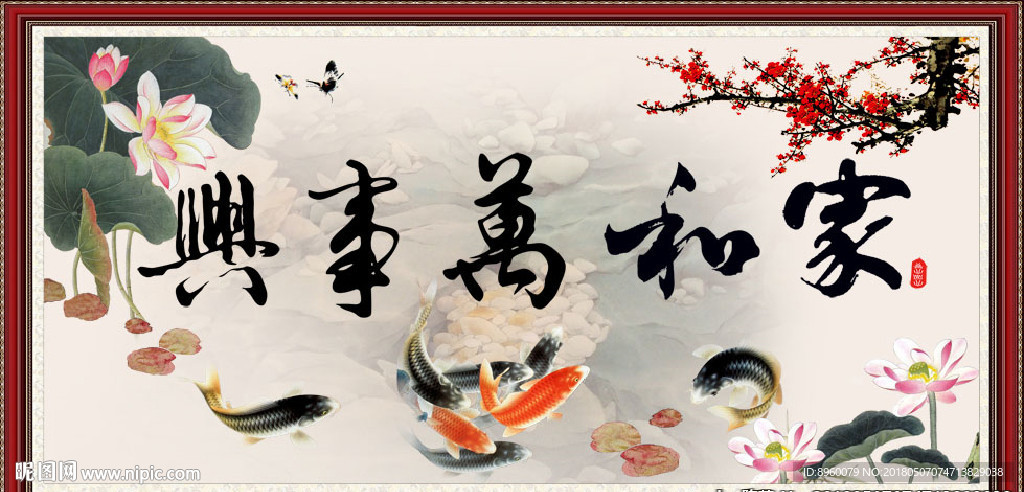 家和萬事興
昵图网 www.nipic.com
ID:8960079 NO.20180507074713829038